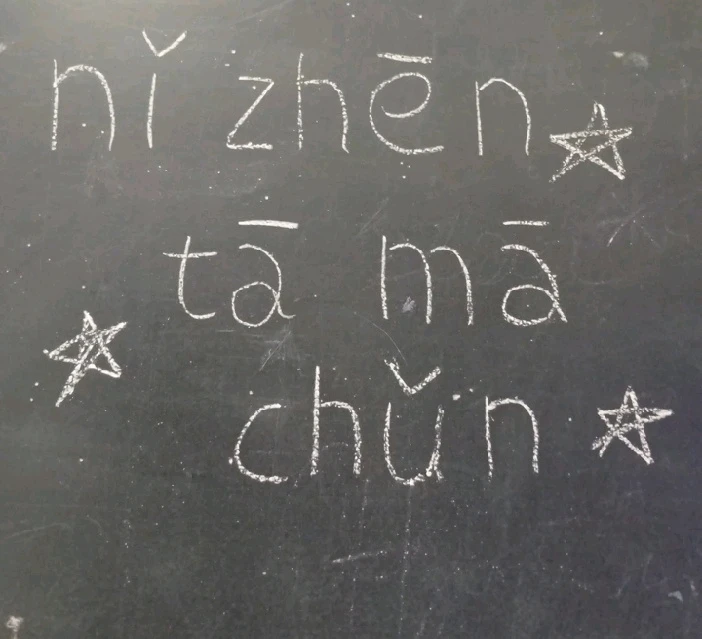 nǐ zhēn
tā mā
chǔn